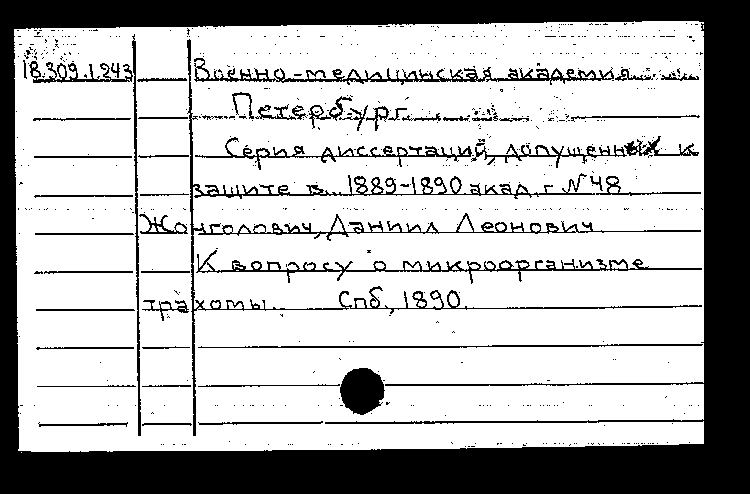 18.309.1.243 Военно-медицинская академия
Петербург
Серия диссертаций, допущенных к
защите в 1889-1890 акад. г № 48
Жонголович, Даниил Леонович
К вопросу о микроорганизме
трахомы. Спб, 1890.